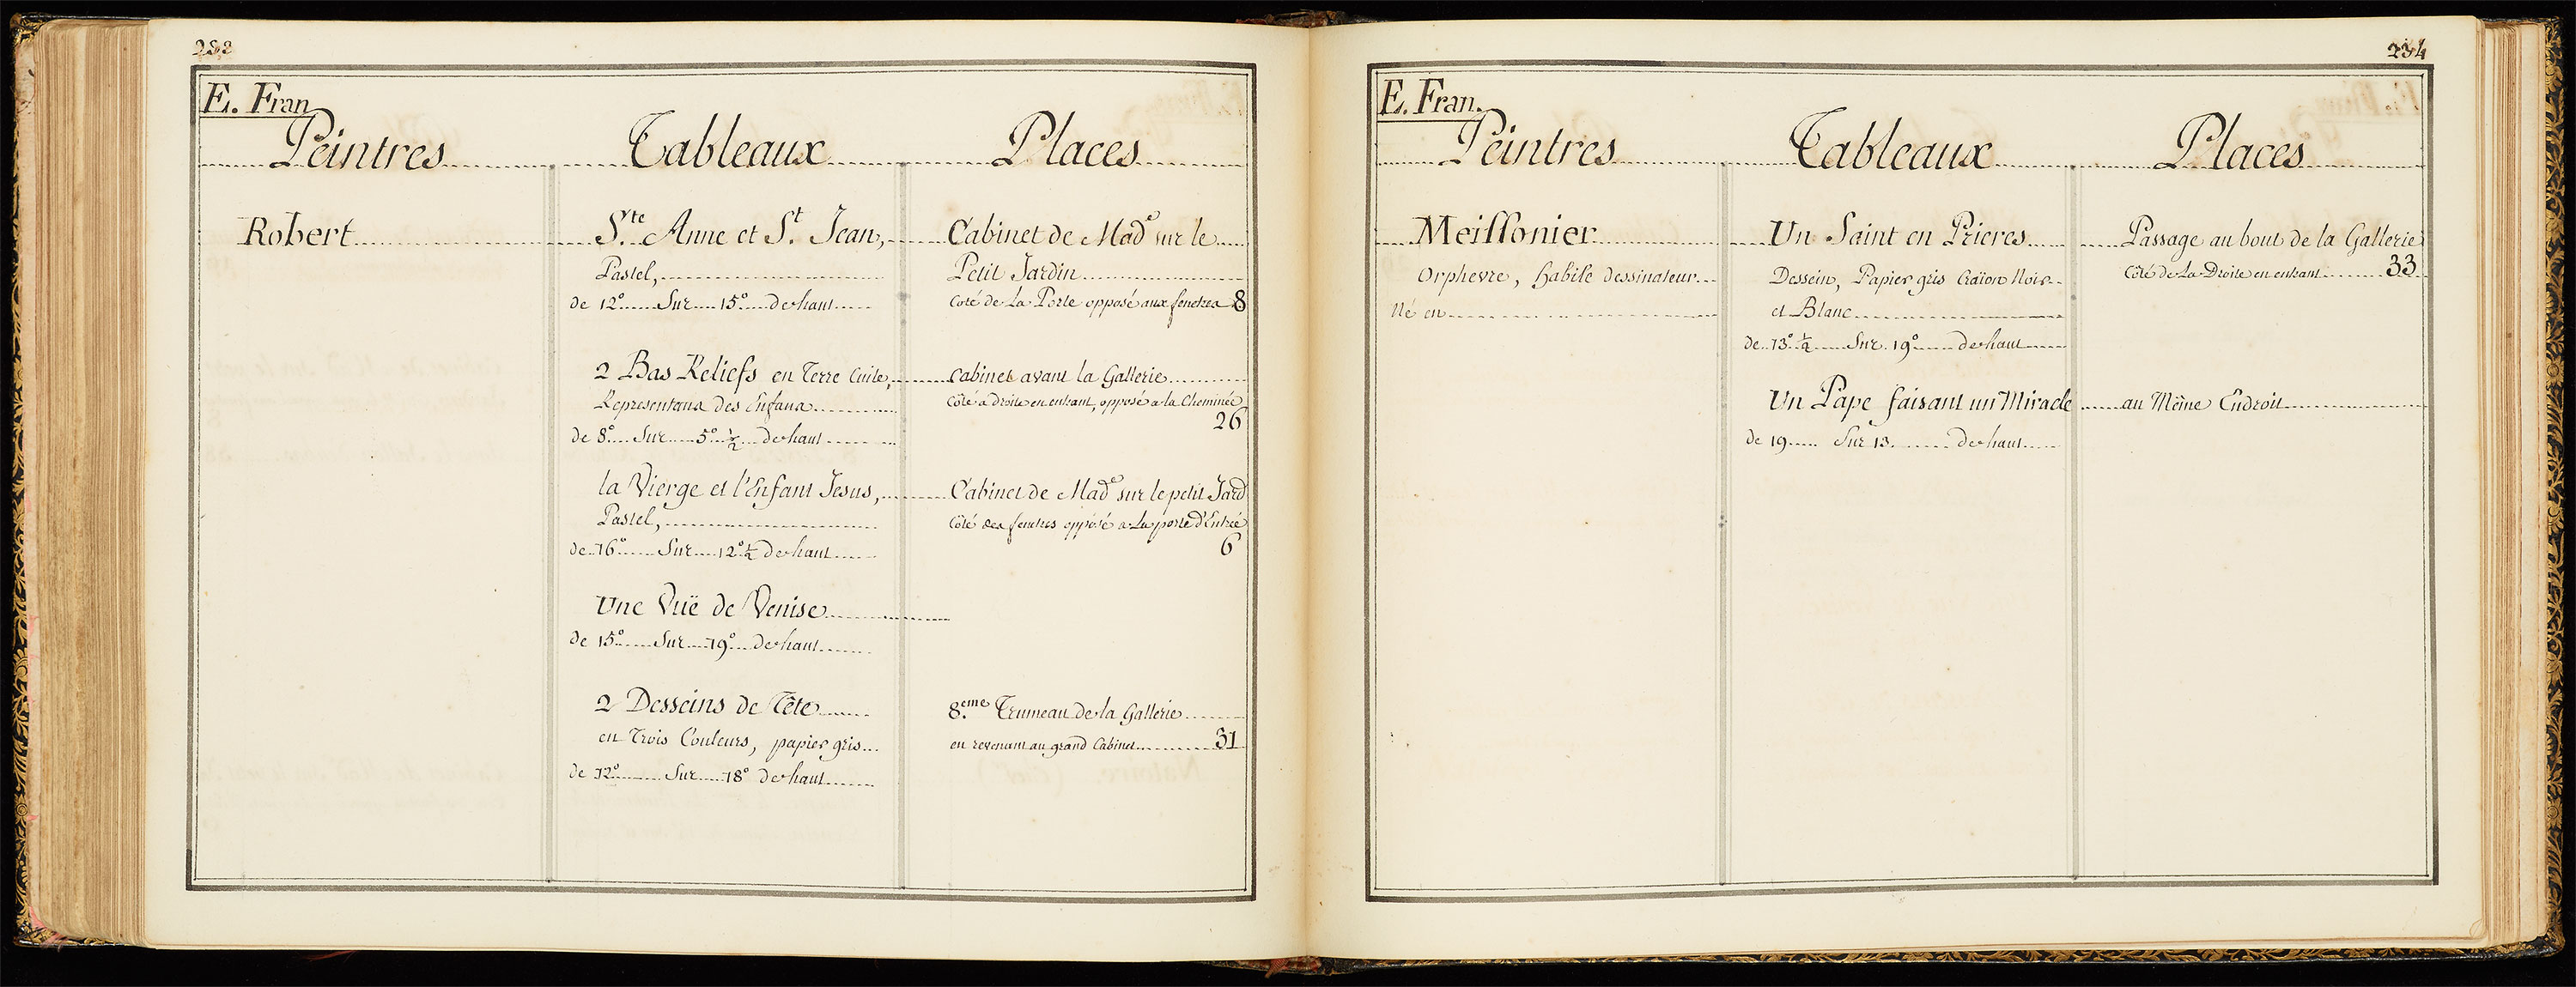 E. Fran
Peintres Tableaux Places
Robert S.te Anne et S.t Jean, Cabinet de Mad.e sur le
Pastel, Petit Jardin
de 12° Sur 15° de haut Coté de La Porte opposé aux fenetres 8
2 Bas Reliefs en Terre Cuite, Cabinet avant la Gallerie
Representans des Enfans Côté a Droite en entrant, opposé a la Cheminée
26
de 8° Sur 5° ½ de haut
la Vierge et l'Enfant Jesus, Cabinet de Mad.e sur le petit Jard
Pastel, Côté des fenetres opposé a La porte d'Entrée
de 16° Sur 12° ½ de haut 6
Une Vuë de Venise
de 15° Sur 19° de haut
2 Desseins de Tête 8.eme Trumeau de la Gallerie
en Trois Couleurs, papier gris en revenant au grand Cabinet 31
de 12° Sur 18° de haut
234
E. Fran.
Peintres Tableaux Places
Meissonier Un Saint en Prieres Passage au bout de la Gallerie
Orphevre, habile dessinateur Dessein, Papier gris Craïon Noir Côté de La Droite en entrant 33
Né en et Blanc
de 13° ½ Sur 19° de haut
Un Pape faisant un Miracle au Même Endroit
de 19 Sur 13 de haut